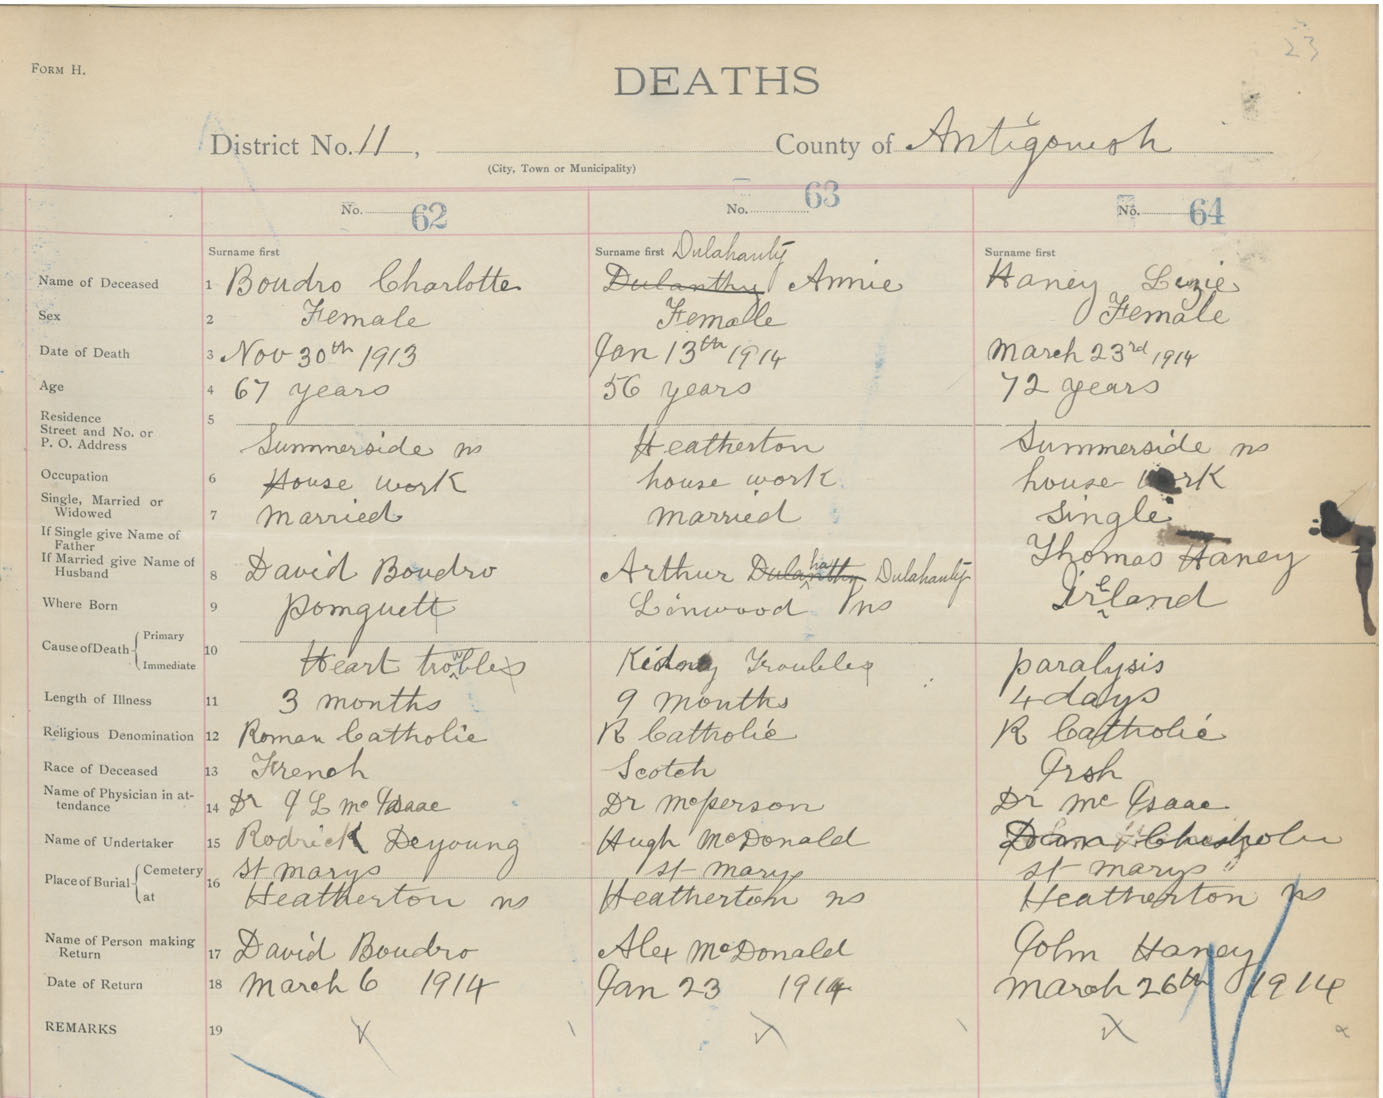 23
FORM H.
DEATHS
District No. 11, County of Antigonish
(City, Town or Municipality)
No. 62 No. 63 No. 64
Surname first Surname first Dulahanty Surname first
Name of Deceased 1 Boudro Charlotte Dulanthy Annie Haney Lizie
Sex 2 Female Female Female
Date of Death 3 Nov 30th 1913 Jan 13th 1914 March 23rd 1914
Age 4 67 years 56 years 72 years
Residence 5
Street and No. or
P. O. Address Summerside ns Heatherton Summerside ns
Occupation 6 House work house work house work
Single, Married or
Widowed 7 married married single
If Single give Name of
Father Thomas Haney
If Married give Name of
Husband 8 David Boudro Arthur Dulahanty
Where Born 9 pomquett Linwood ns Ireland
Cause of Death Primary 10
Immediate Heart trouble Kidney Trouble paralysis
Length of Illness 11 3 months 9 months 4 days
Religious Denomination 12 Roman Catholic R Catholic R Catholic
Race of Deceased 13 French Scotch Irsh
Name of Physician in at-
tendance 14 Dr J L Mc Isaac Dr mcpherson Dr mc Isaac
Name of Undertaker 15 Rodrick Deyoung Hugh McDonald Dan Chisholm
Place of Burial Cemetery 16 st marys st marys st marys
at Heatherton ns Heatherton ns Heatherton ns
Name of Person making
Return 17 David Boudro Alex McDonald John Haney
Date of Return 18 March 6 1914 Jan 23 1914 March 26th 1914
REMARKS 19